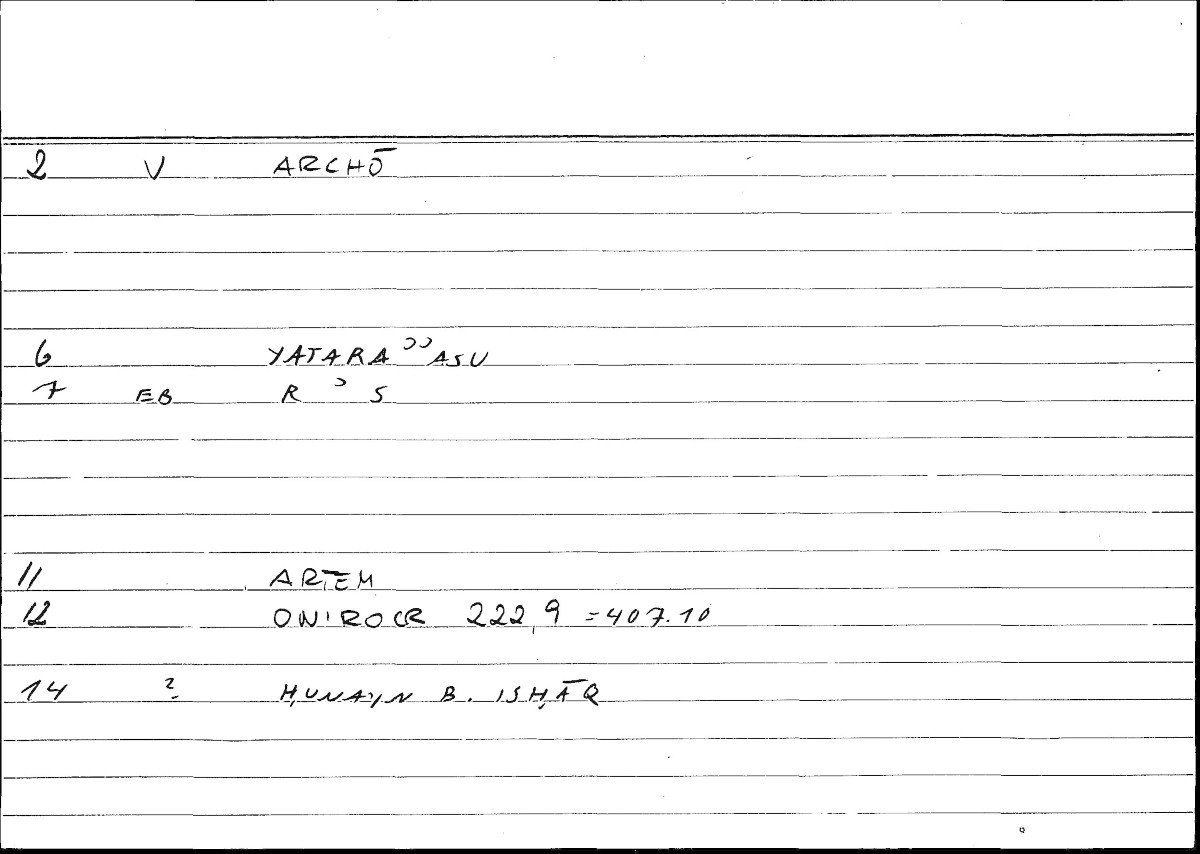 2 V ARCHŌ
6 YATARAʾʾASU
7 EB R ʾ S
11 ARTEM
12 ONIROCR 222,9 = 407.10
14 ? ḤUNAYN B. ISḤĀQ